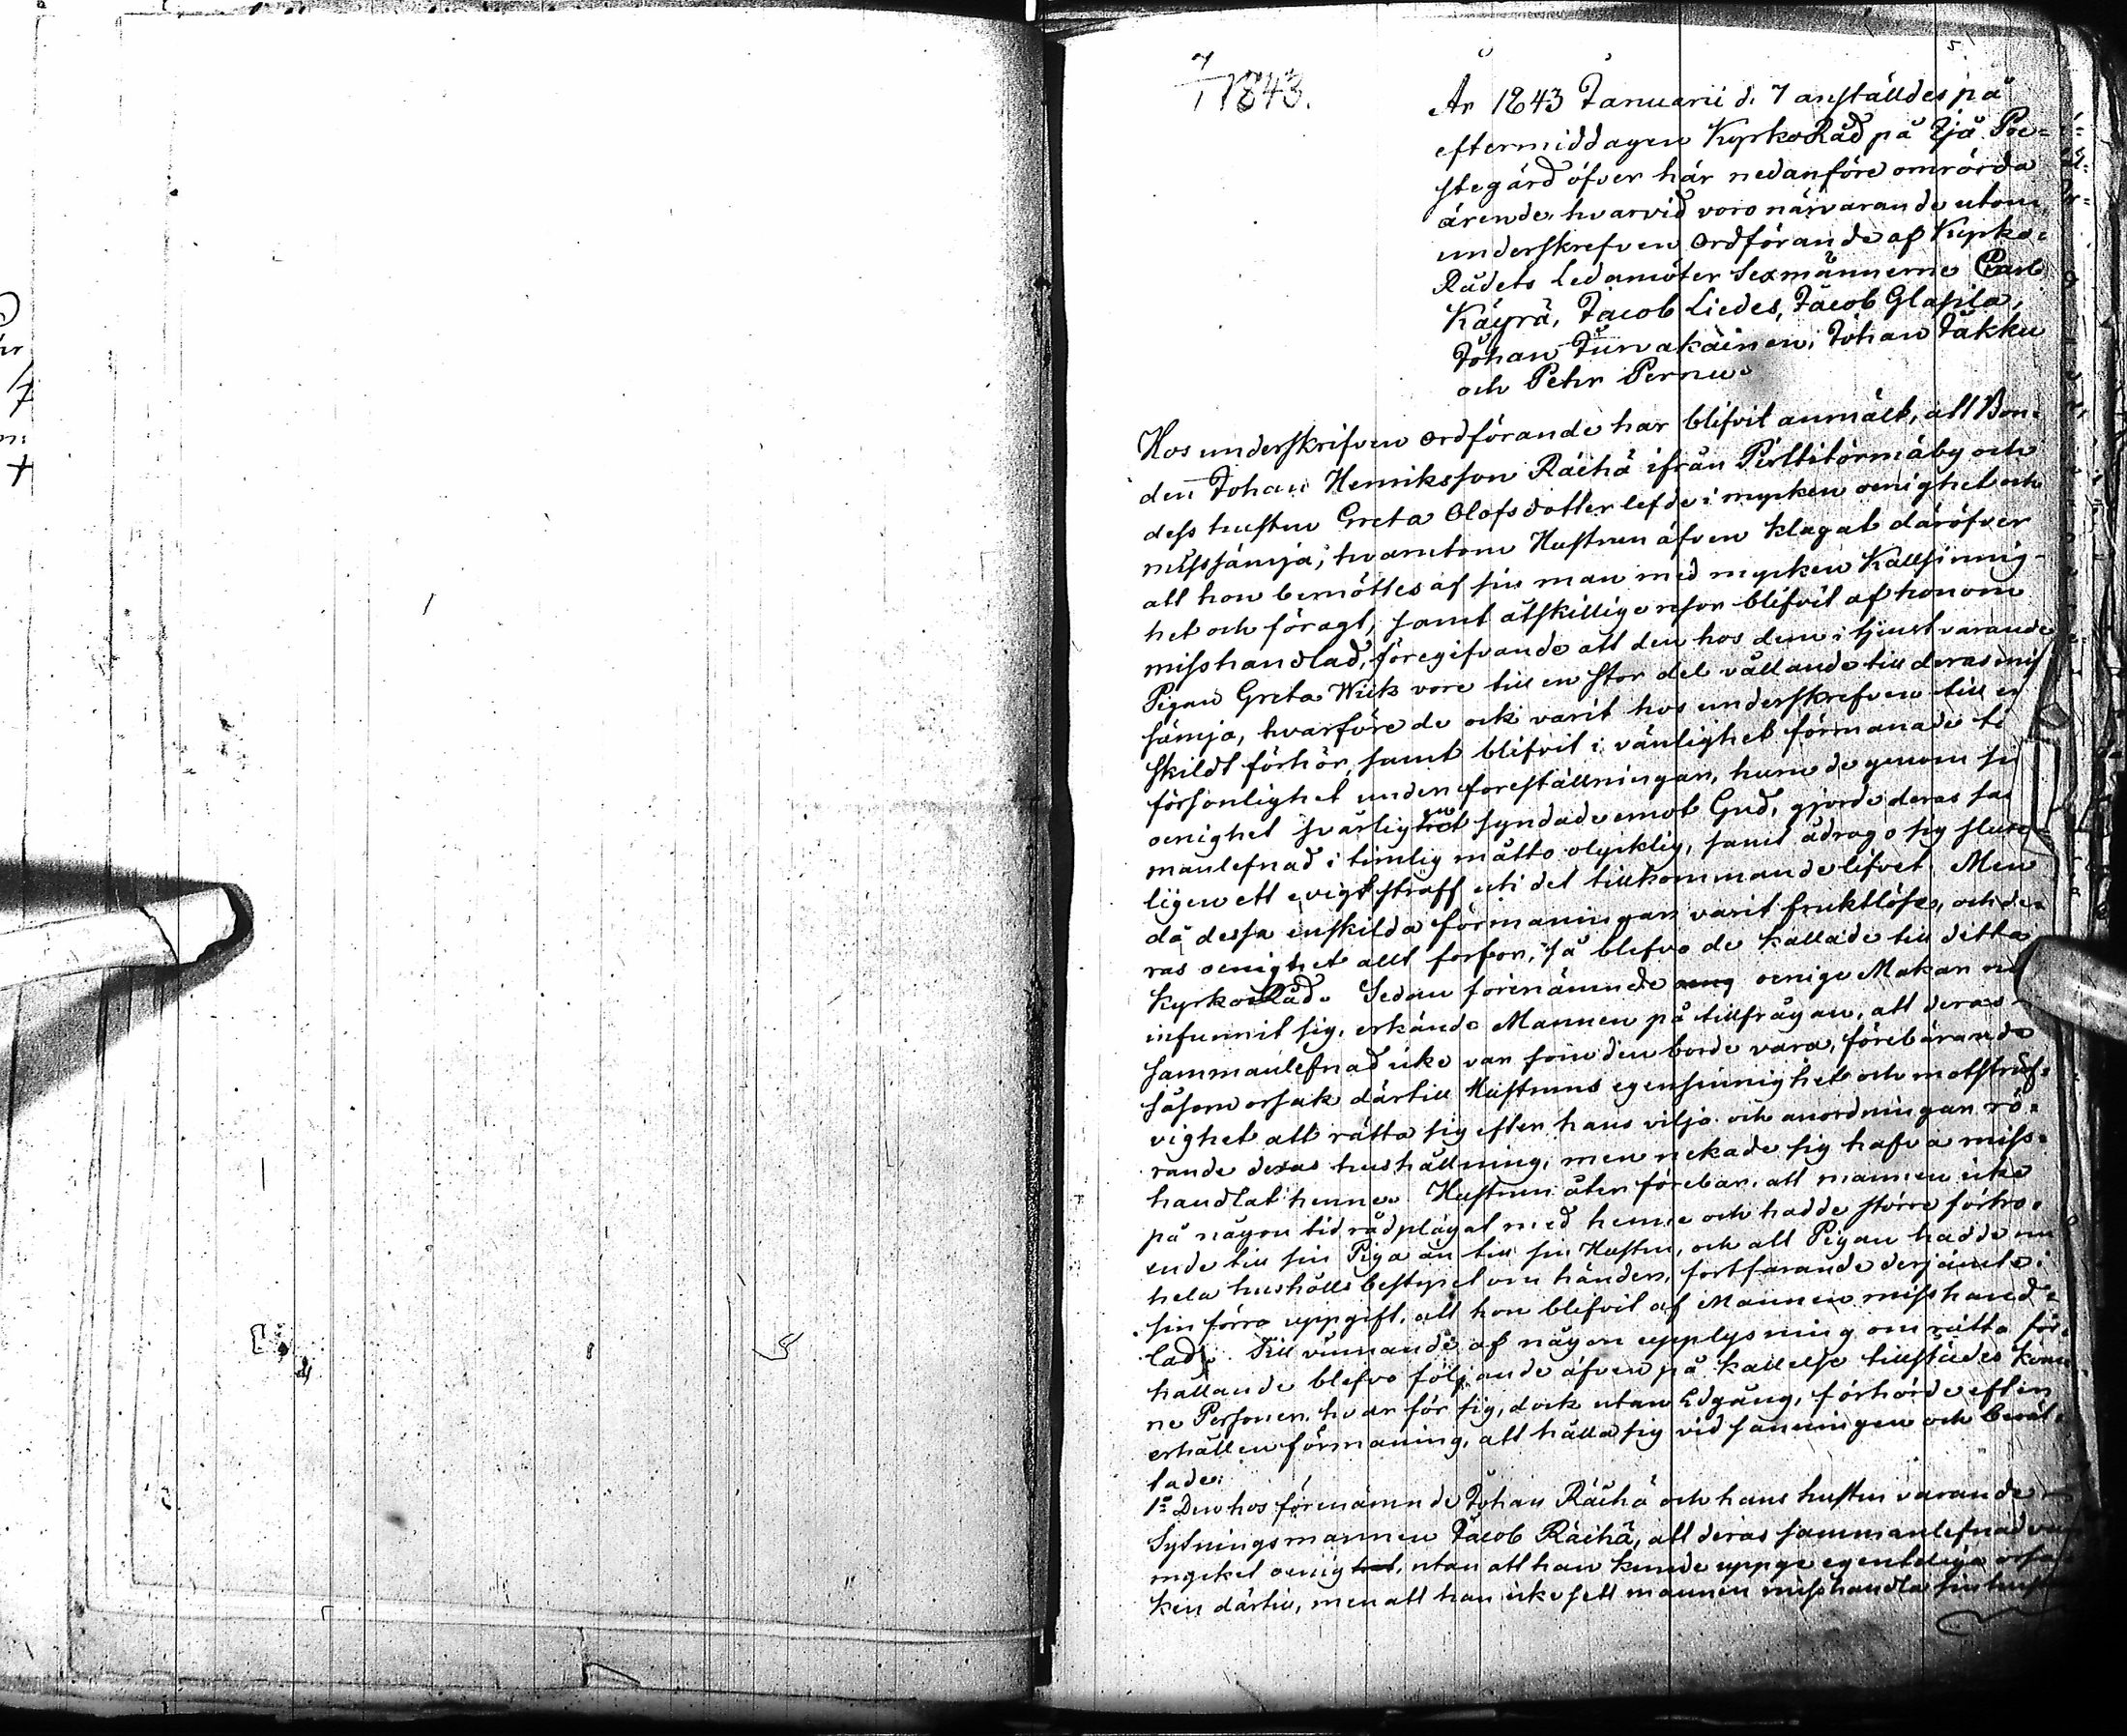 7/1 1843.
År 1843 Januarii d. 7 anställdes på
eftermiddagen KyrkoRåd på Ijå Pre=
stegård öfver här nedanföre omrörda
ärende, hvarvid voro närvarande utom
underskrefven Ordförande af Kyrko=
Rådets Ledamöter Sexmännerne Carl
Käyrä, Jacob Liedes, Jacob Glasila,
Johan Jurvakäinen, Johan Jakku
och Petr Pernu.
Hos underskrifven Ordförande har blifvit anmält, att Bon=
den Johan Henriksson Räihä ifrån Pirttitörmä by och
dess hustru Greta Olofsdotter lefde i mycken oenighet och
misssämja, hvarutom Hustrun äfven klagat däröfver
att hon bemöttes af sin man med mycken Kallsinnig-
het och föragt, samt åtskillige resor blifvit af honom
misshandlad, föregifvande att den hos dem i tjenst varande
Pigan Greta Wiik vore till en stor del vållande till deras mis
sämja, hvarföre de ock varit hos underskrefven till en
skildt förhör, samt blifvit i vänlighet förmanade ti
försonlighet under föreställningar, huru de genom sin
oenighet svårligen syndade emot Gud, gjorde deras sa
manlefnad i timlig måtto olycklig, samt ådrogo sig slute=
ligen ett evigt straff uti det tillkommande lifvet. Men
då dessa enskilda förmaningar varit fruktlösa, och de=
ras oenighet allt fortfor, så blefvo de kallade till detta
KyrkoRåd. Sedan förenämnde oenige Makar nu
infunnit sig, erkände Mannen på tillfrågan, att deras
sammanlefnad icke var som den borde vara, förebärande
såsom orsak därtill Hustruns egensinnighet och motsträf=
vighet att rätta sig efter hans vilja och anordningar rö=
rande deras hushållning, men nekade sig hafva miss=
handlat henne. Hustrun åter förebar, att mannen icke
på någon tid rådplägat med henne och hadde större förtro=
ende till sin Piga än till sin Hustru, och att Pigan hadde nu
hela hushålls bestyret om händer, fortfarande derjämte i
sin förra uppgift, att hon blifvit af Mannen misshand=
lad. Till vinnande af någon upplysning om rätta för=
hållande blefvo följande äfven på kallelse tillstädes komn
ne Personer, hvar för sig, dock utan Edgång, förhörde efter
erhållen förmaning, att hålla sig vid sanningen och berät=
tade:
1o Den hos förenämnde Johan Räihä och hans hustru varande
Sytningsmannen Jacob Räihä, att deras sammanlefnad var
mycket oenig, utan att han kunde uppge egenteliga orsa
ken därtill, men att han icke sett mannen misshandla sin hustru